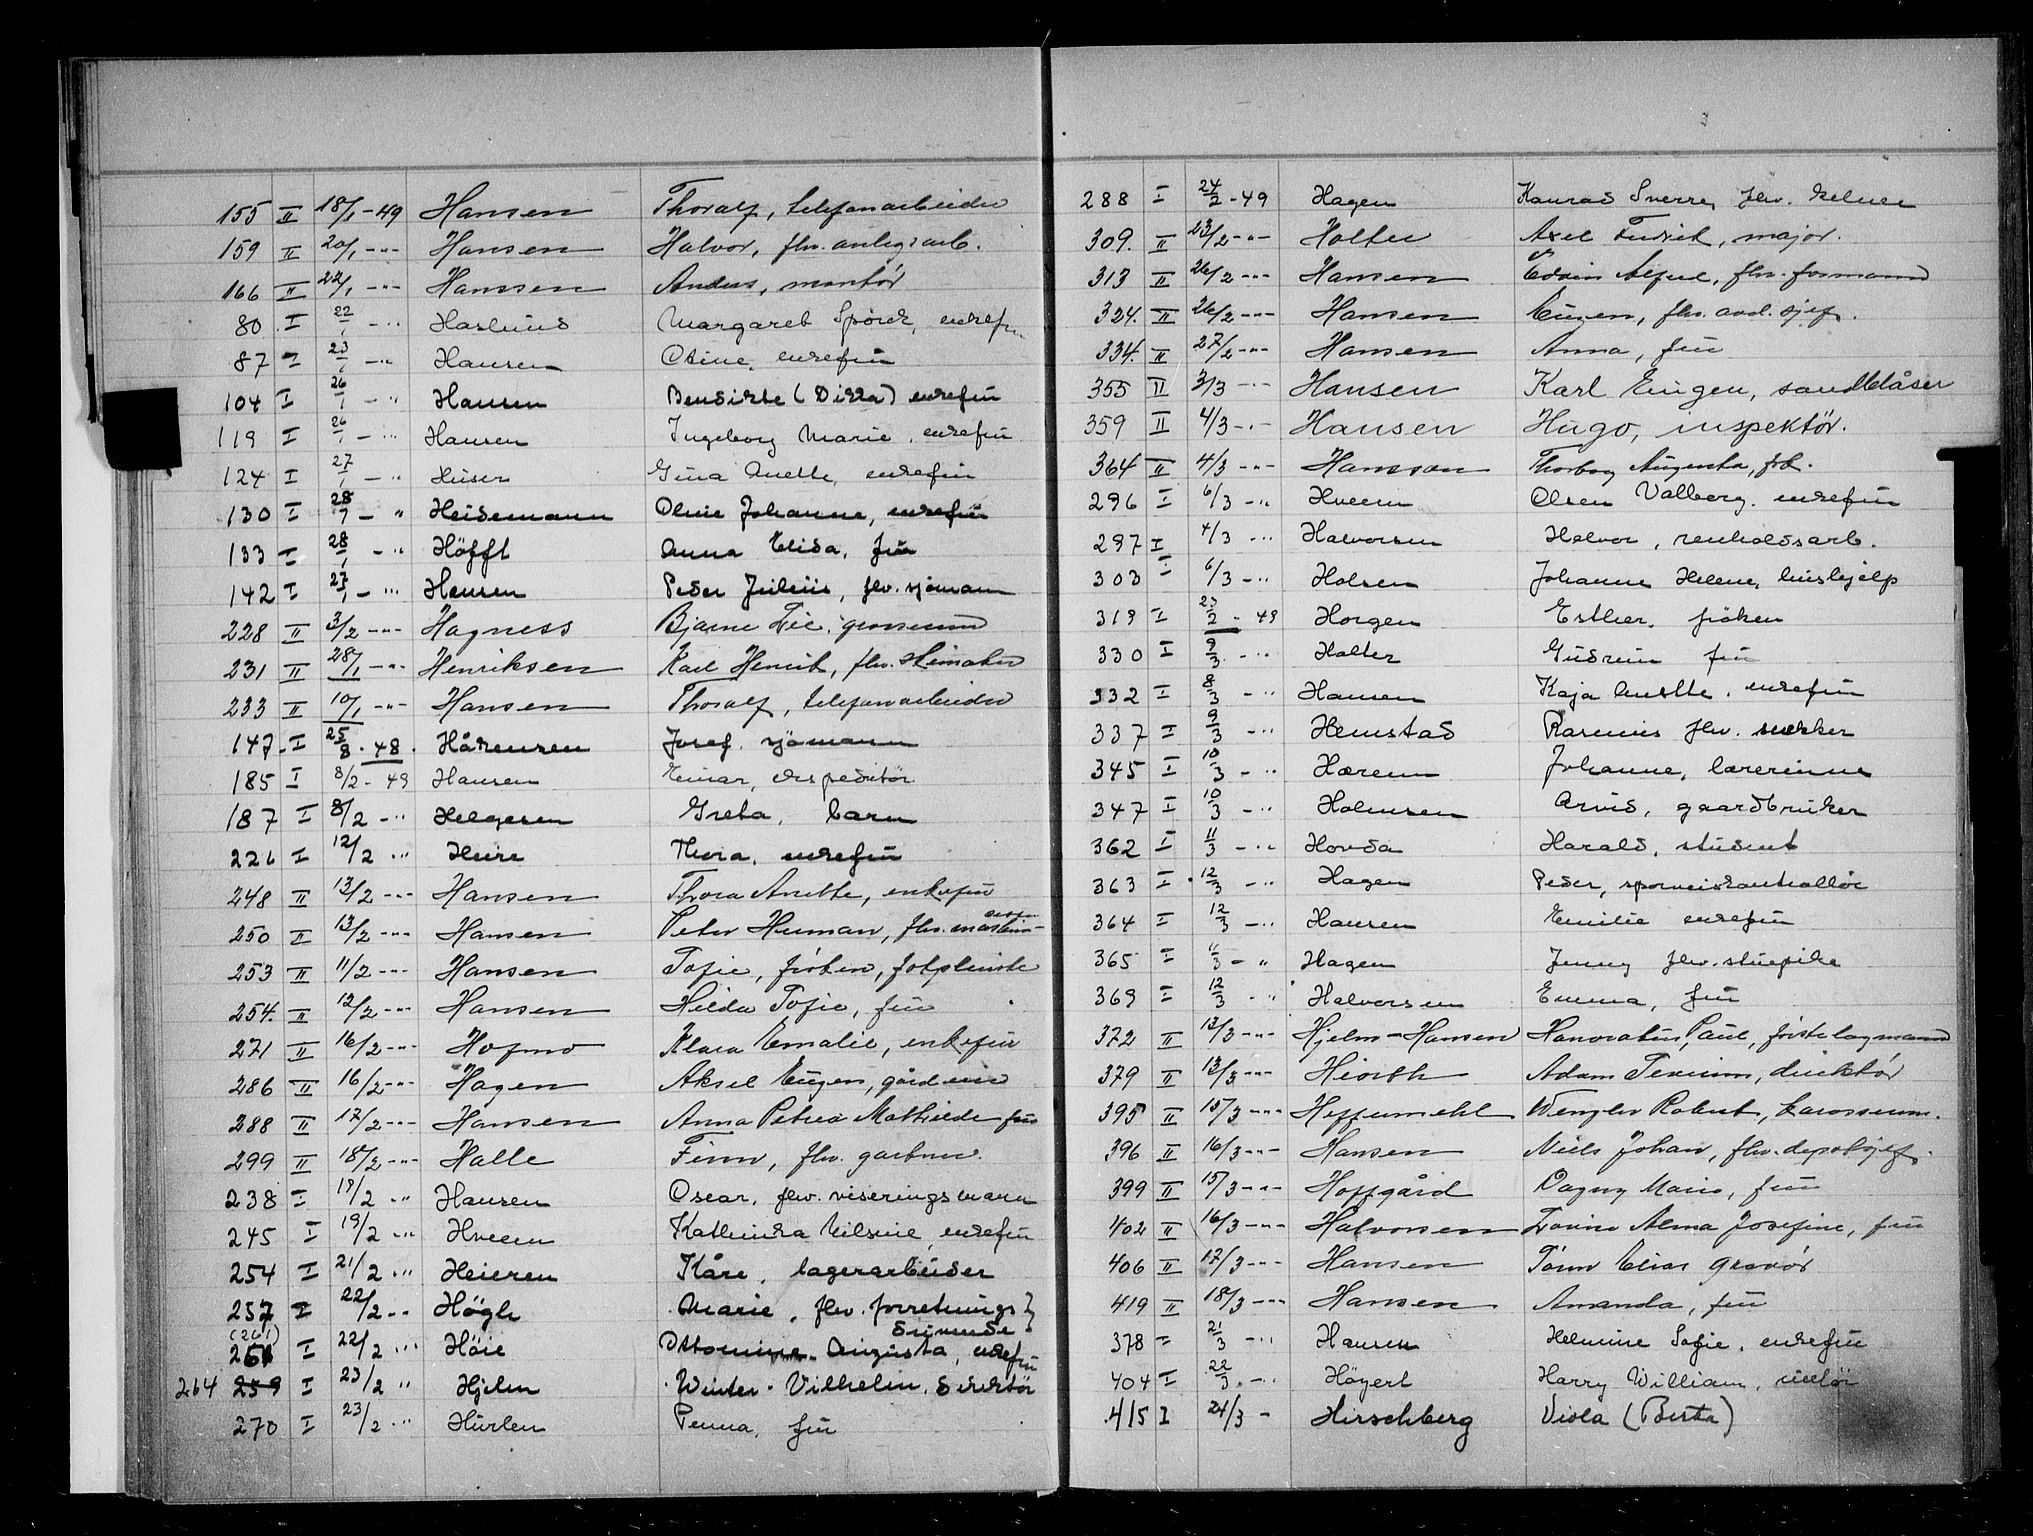 155 II 18/1 - 49 Hansen Thoralf, telefonarbeider
159 II 20/1 -"- Hansen Halvor, fhv. anlegsarb.
166 II 22/1 -"- Hanssen Anders, montör
80 I 22/1 -" Margaret enkefru
87 I 23/1 -" Hansen Otine, enkefru
104 I 26/1 -" Hansen Bendikte (Dikka) enkefru
119 I 26/1 -" Hansen Ingeborg Marie, enkefru
124 I 27/1 -" Huser Gina Anette, enkefru
130 I 28/1 - " Heidemann Oline Johanne, enkefru
133 I 28/1 -" Höfft Anna Elida, fru
142 I 27/1 -" Hansen Peder Julius, fhv. sjömann
228 II 3/2 -"- Hagness Bjarne Lie, grosserer
231 II 28/1 -"- Henriksen Karl Henrik, fhv.
233 II 10/1 -"- Hansen Thoralf, telefonarbeider
147 I 25/8 - 48 Håkensen Josef, sjömann
185 I 8/2 - 49 Hansen Einar, ekspeditör
187 I 8/2 -" Helgesen Greta, barn
226 I 12/2 " Heire Thora, enkefru
248 II 13/2 -"- Hansen Thora Anette, enkefru
250 II 13/2 -"- Hansen Peter Herman, fhv. maskin-
253 II 11/2 -"- Hansen Sofie, fröken,
254. II 12/2 -"- Hansen Hilda Sofie, fru
271 II 16/2 -"- Hofmo Klara Emalie, enkefru
286 II 16/2 -"- Hagen Aksel Eugen, gårdeier
288 II 17/2 -"- Hansen Anna Petrea Mathilde fru
299 II 18/2 -"- Halle Finn, fhv. gartner.
238 I 19/2 " Hansen Oscar, fhv. viseringsmann
245 I 19/2 -" Hveem Kathinka Nilsine, enkefru
254 I 21/2 -" Heieren Kåre, lagerarbeider
257 I 22/2 -" Högli Marie, fhv. forretnings}
drivende
(261) 261 I 22/2 -" Höie Ottomine Augusta, enkefru
264 259 I 23/2 " Hjelm Winter-Vilhelm, direktör
270 I 23/2 -" Hurlen Penna, fru
288 I 24/2 - 49 Hagen Konrad Sverre, fhv. kelner
309. II 23/2 -"- Holter Axel Fredrik, major.
313 II 26/2 -"- Hansen Edvin Alfred, fhv. formann
324. II 26/2 -"- Hansen Eugen, fhv. avd. sjef.
334. II 27/2 -"- Hansen Anna, fru
355 II 3/3 -"- Hansen Karl Eugen, sandblåser
359 II 4/3 -"- Hansen Hugo, inspektör.
364 II 4/3 -"- Hansson Thorborg Augusta, frk.
296 I 6/3 -" Hveem Olsen Valborg, enkefru
297 I 4/3 -" Halvorsen Halvor, renholdsarb.
303 I 6/3 -" Holsen Johanne Helene, hushjelp
319 I 23/2 - 49 Horgen Esther, fröken
330 I 9/3 -" Holter Gudrun fru
332 I 8/3 -" Hansen Kaja Anette, enkefru
337 I 9/3 -" Hemstad Rasmus fhv. snekker
345 I 10/3 -" Hærem Johanne, lærerinne
347 I 10/3 -" Holmsen Arvid, gaardbruker
362 I 11/3 -" Hovda Harald, student
363 I 12/3 -" Hagen Peder, sporveiskontrollör
364 I 12/3 -" Hansen Emilie enkefru
365 I 11/3 - " Hagen Jenny fhv. stuepike
369 I 12/3 -" Halvorsen Emma, fru
372 II 13/3 -"- Hjelm-Hansen Honoratus Paul, förstelagmann
379 II 13/3 -"- Hiorth Adam Severin, direktör
395 II 15/3 -"- Heffermehl Wenzler Robert,
396 II 16/3 -"- Hansen Niels Johan, fhv. depotsjef.
399 II 15/3 -"- Hoffgård Dagny Marie, fru
402 II 16/3 -"- Halvorsen Lovine Alma Josefine, fru
406 II 17/3 -"- Hansen Elias gravör
419 II 18/3 -"- Hansen Amanda, fru
378 I 21/3 -" Hansen Helmine Sofie, enkefru
404 I 22/3 -" Höyert Harry William,
415 I 24/3 - Hirschberg Viola (Berta)